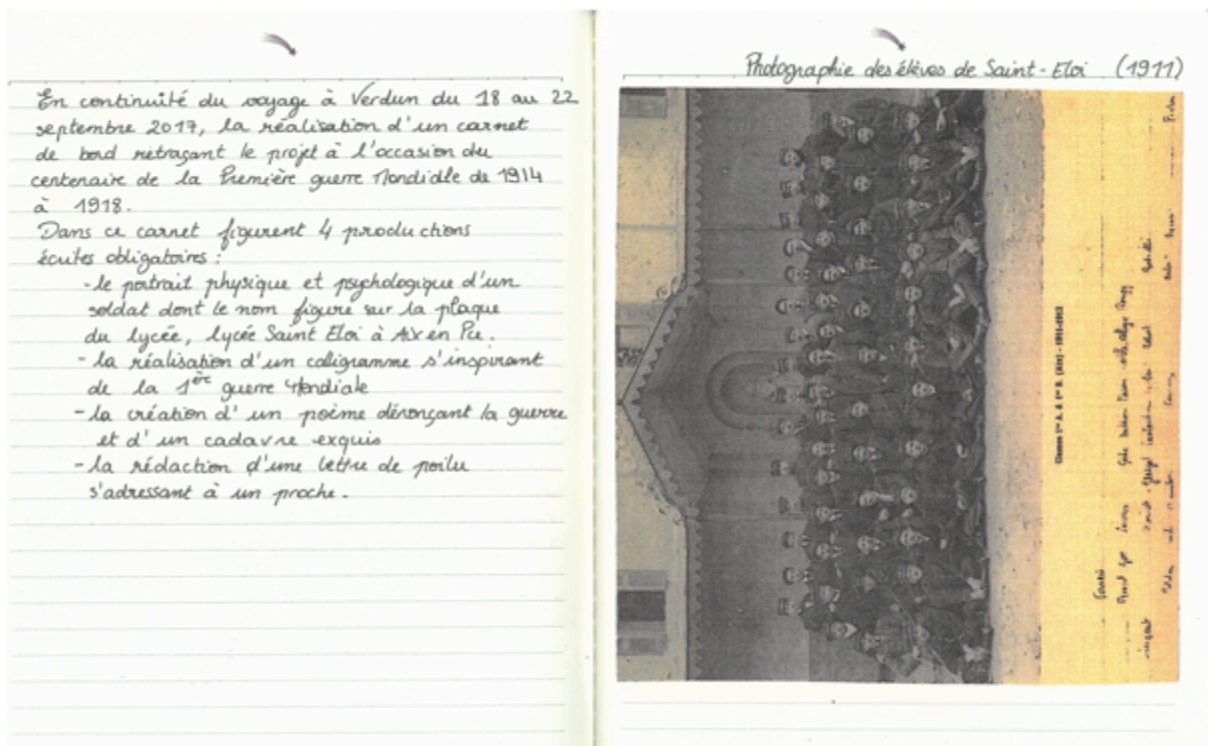 En continuité du voyage à Verdun du 18 au 22
septembre 2017, la réalisation d'un carnet
de bord retraçant le projet à l'occasion du
centenaire de la Première guerre Mondialle de 1914
à 1918.
Dans ce carnet figurent 4 productions
écrites obligatoires :
- le portrait physique et psychologique d'un
soldat dont le nom figure sur la plaque
du lycée, lycée Saint Eloi à Aix en Pce.
- la réalisation d'un caligramme s'inspirant
de la 1ère guerre Mondiale
- la création d'un poème dénonçant la guerre
et d'un cadavre exquis
- la rédaction d'une lettre de poilu
s'adressant à un proche.
Photographie des élèves de Saint-Eloi (1911)
Classes 1re A. & 1re B. (Aix) - 1911-1912